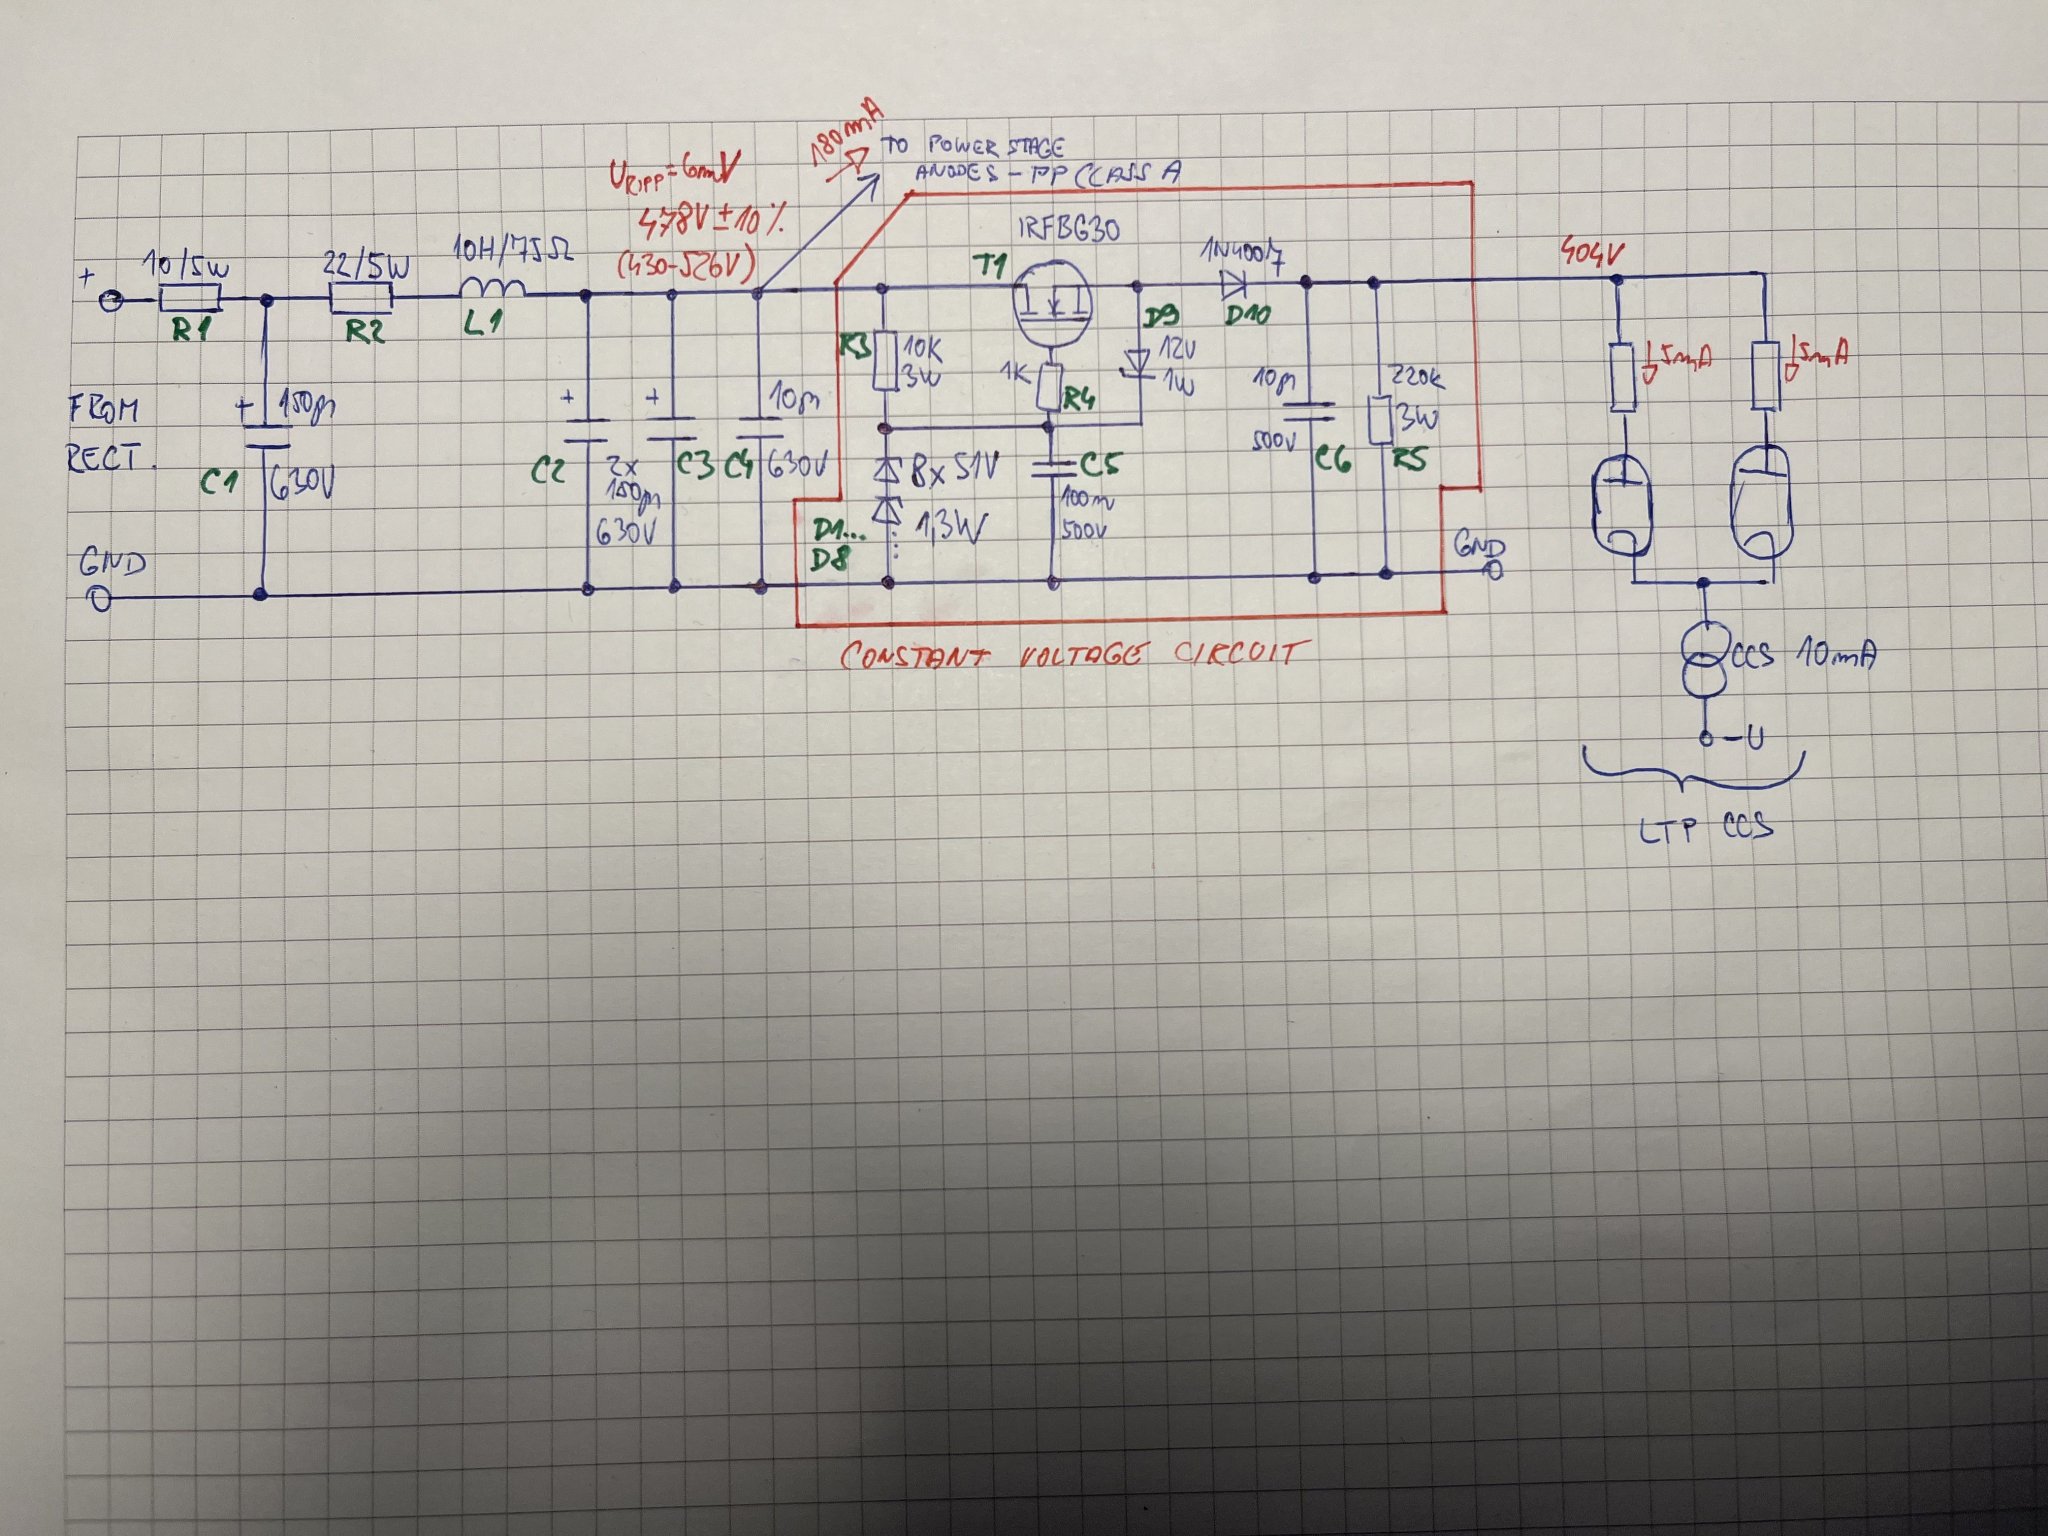 180mA
TO POWER STAGE
ANODES - PP CLASS A
URIPP=6mV
478V ± 10%
(430-526V)
IRFBG30
T1
1N4007
D10
404V
+
10/5W
R1
22/5W
R2
10H/75Ω
L1
R3
10K
3W
1K
R4
D9
12V
1W
10µ
500V
C6
220K
3W
R5
5mA
5mA
FROM
RECT.
+
150µ
C1
630V
+
+
C2
2x
150µ
630V
C3
C4
10µ
630V
8x 51V
1,3W
D1...
D8
C5
100n
500V
GND
GND
CONSTANT VOLTAGE CIRCUIT
CCS 10mA
-U
LTP CCS